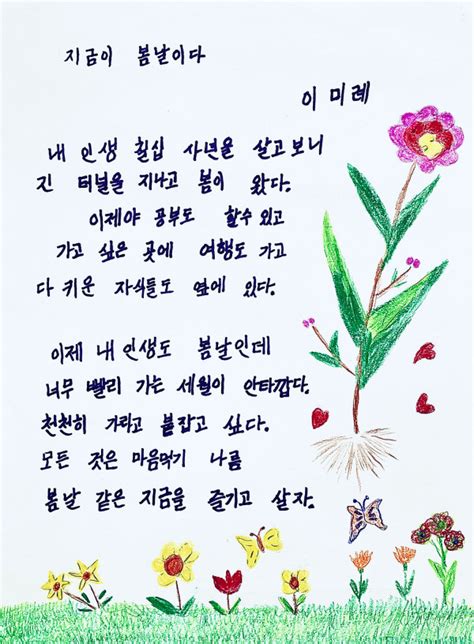 지금이 봄날이다
이 미례
내 인생 칠십 사년을 살고보니
긴 터널을 지나고 봄이 왔다.
이제야 공부도 할수 있고
가고 싶은 곳에 여행도 가고
다 키운 자식들도 옆에 있다.
이제 내 인생도 봄날인데
너무 빨리 가는 세월이 안타깝다.
천천히 가라고 붙잡고 싶다.
모든 것은 마음먹기 나름
봄날 같은 지금을 즐기고 살자.